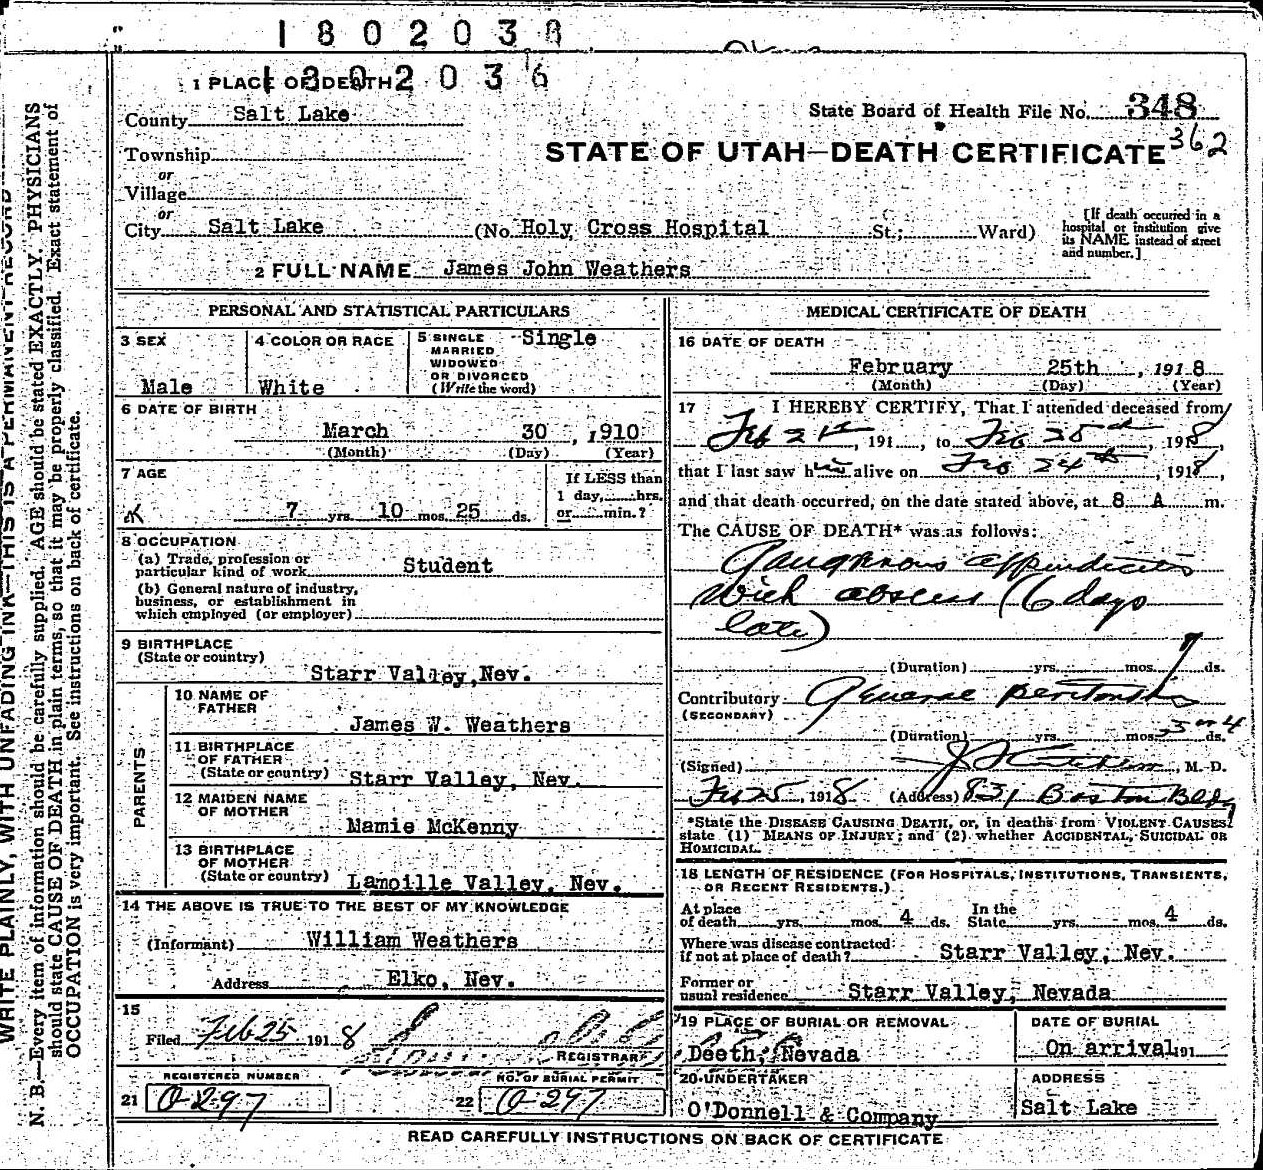 1802038
1802036
1 PLACE OF DEATH
County Salt Lake
State Board of Health File No. 348
362
Township
or
STATE OF UTAH—DEATH CERTIFICATE
Village
or
City Salt Lake (No. Holy Cross Hospital St.; Ward)
[If death occured in a hospital or institution give its NAME instead of street and number.]
2 FULL NAME James John Weathers
PERSONAL AND STATISTICAL PARTICULARS
3 SEX Male
4 COLOR OR RACE White
5 SINGLE MARRIED WIDOWED OR DIVORCED (Write the word) Single
6 DATE OF BIRTH
March 30, 1910
(Month) (Day) (Year)
7 AGE
7 yrs. 10 mos. 25 ds.
If LESS than 1 day, hrs. or min.?
8 OCCUPATION
(a) Trade, profession or particular kind of work Student
(b) General nature of industry, business, or establishment in which employed (or employer)
9 BIRTHPLACE
(State or country)
Starr Valley, Nev.
PARENTS
10 NAME OF FATHER
James W. Weathers
11 BIRTHPLACE OF FATHER
(State or country) Starr Valley, Nev.
12 MAIDEN NAME OF MOTHER
Mamie McKenny
13 BIRTHPLACE OF MOTHER
(State or country) Lamoille Valley, Nev.
14 THE ABOVE IS TRUE TO THE BEST OF MY KNOWLEDGE
(Informant) William Weathers
Address Elko, Nev.
15
Filed Feb 25 1918
REGISTRAR
REGISTERED NUMBER
21 0-297
NO. OF BURIAL PERMIT
22 0-297
MEDICAL CERTIFICATE OF DEATH
16 DATE OF DEATH
February 25th, 1918
(Month) (Day) (Year)
17 I HEREBY CERTIFY, That I attended deceased from
Feb 21st, 191 , to Feb 25th, 1918,
that I last saw him alive on Feb 24th, 1918,
and that death occurred, on the date stated above, at 8 A m.
The CAUSE OF DEATH* was as follows:
Gangrenous appendicitis
with abscess (6 days
late)
(Duration) yrs. mos. 7 ds.
Contributory General peritonitis
(SECONDARY)
(Duration) yrs. mos. 3 or 4 ds.
(Signed) M. D.
Feb 25, 1918 (Address) 831 Boston Bldg
*State the DISEASE CAUSING DEATH, or, in deaths from VIOLENT CAUSES,
state (1) MEANS OF INJURY; and (2) whether ACCIDENTAL, SUICIDAL OR
HOMICIDAL.
18 LENGTH OF RESIDENCE (FOR HOSPITALS, INSTITUTIONS, TRANSIENTS,
OR RECENT RESIDENTS.)
At place of death yrs. mos. 4 ds. In the State yrs. mos. 4 ds.
Where was disease contracted
if not at place of death? Starr Valley, Nev.
Former or
usual residence Starr Valley, Nevada
19 PLACE OF BURIAL OR REMOVAL
Deeth, Nevada
DATE OF BURIAL
On arrival 191
20 UNDERTAKER
O'Donnell & Company
ADDRESS
Salt Lake
READ CAREFULLY INSTRUCTIONS ON BACK OF CERTIFICATE
WRITE PLAINLY, WITH UNFADING INK—THIS IS A PERMANENT RECORD
N. B.—Every item of information should be carefully supplied. AGE should be stated EXACTLY. PHYSICIANS
should state CAUSE OF DEATH in plain terms, so that it may be properly classified. Exact statement of
OCCUPATION is very important. See instructions on back of certificate.